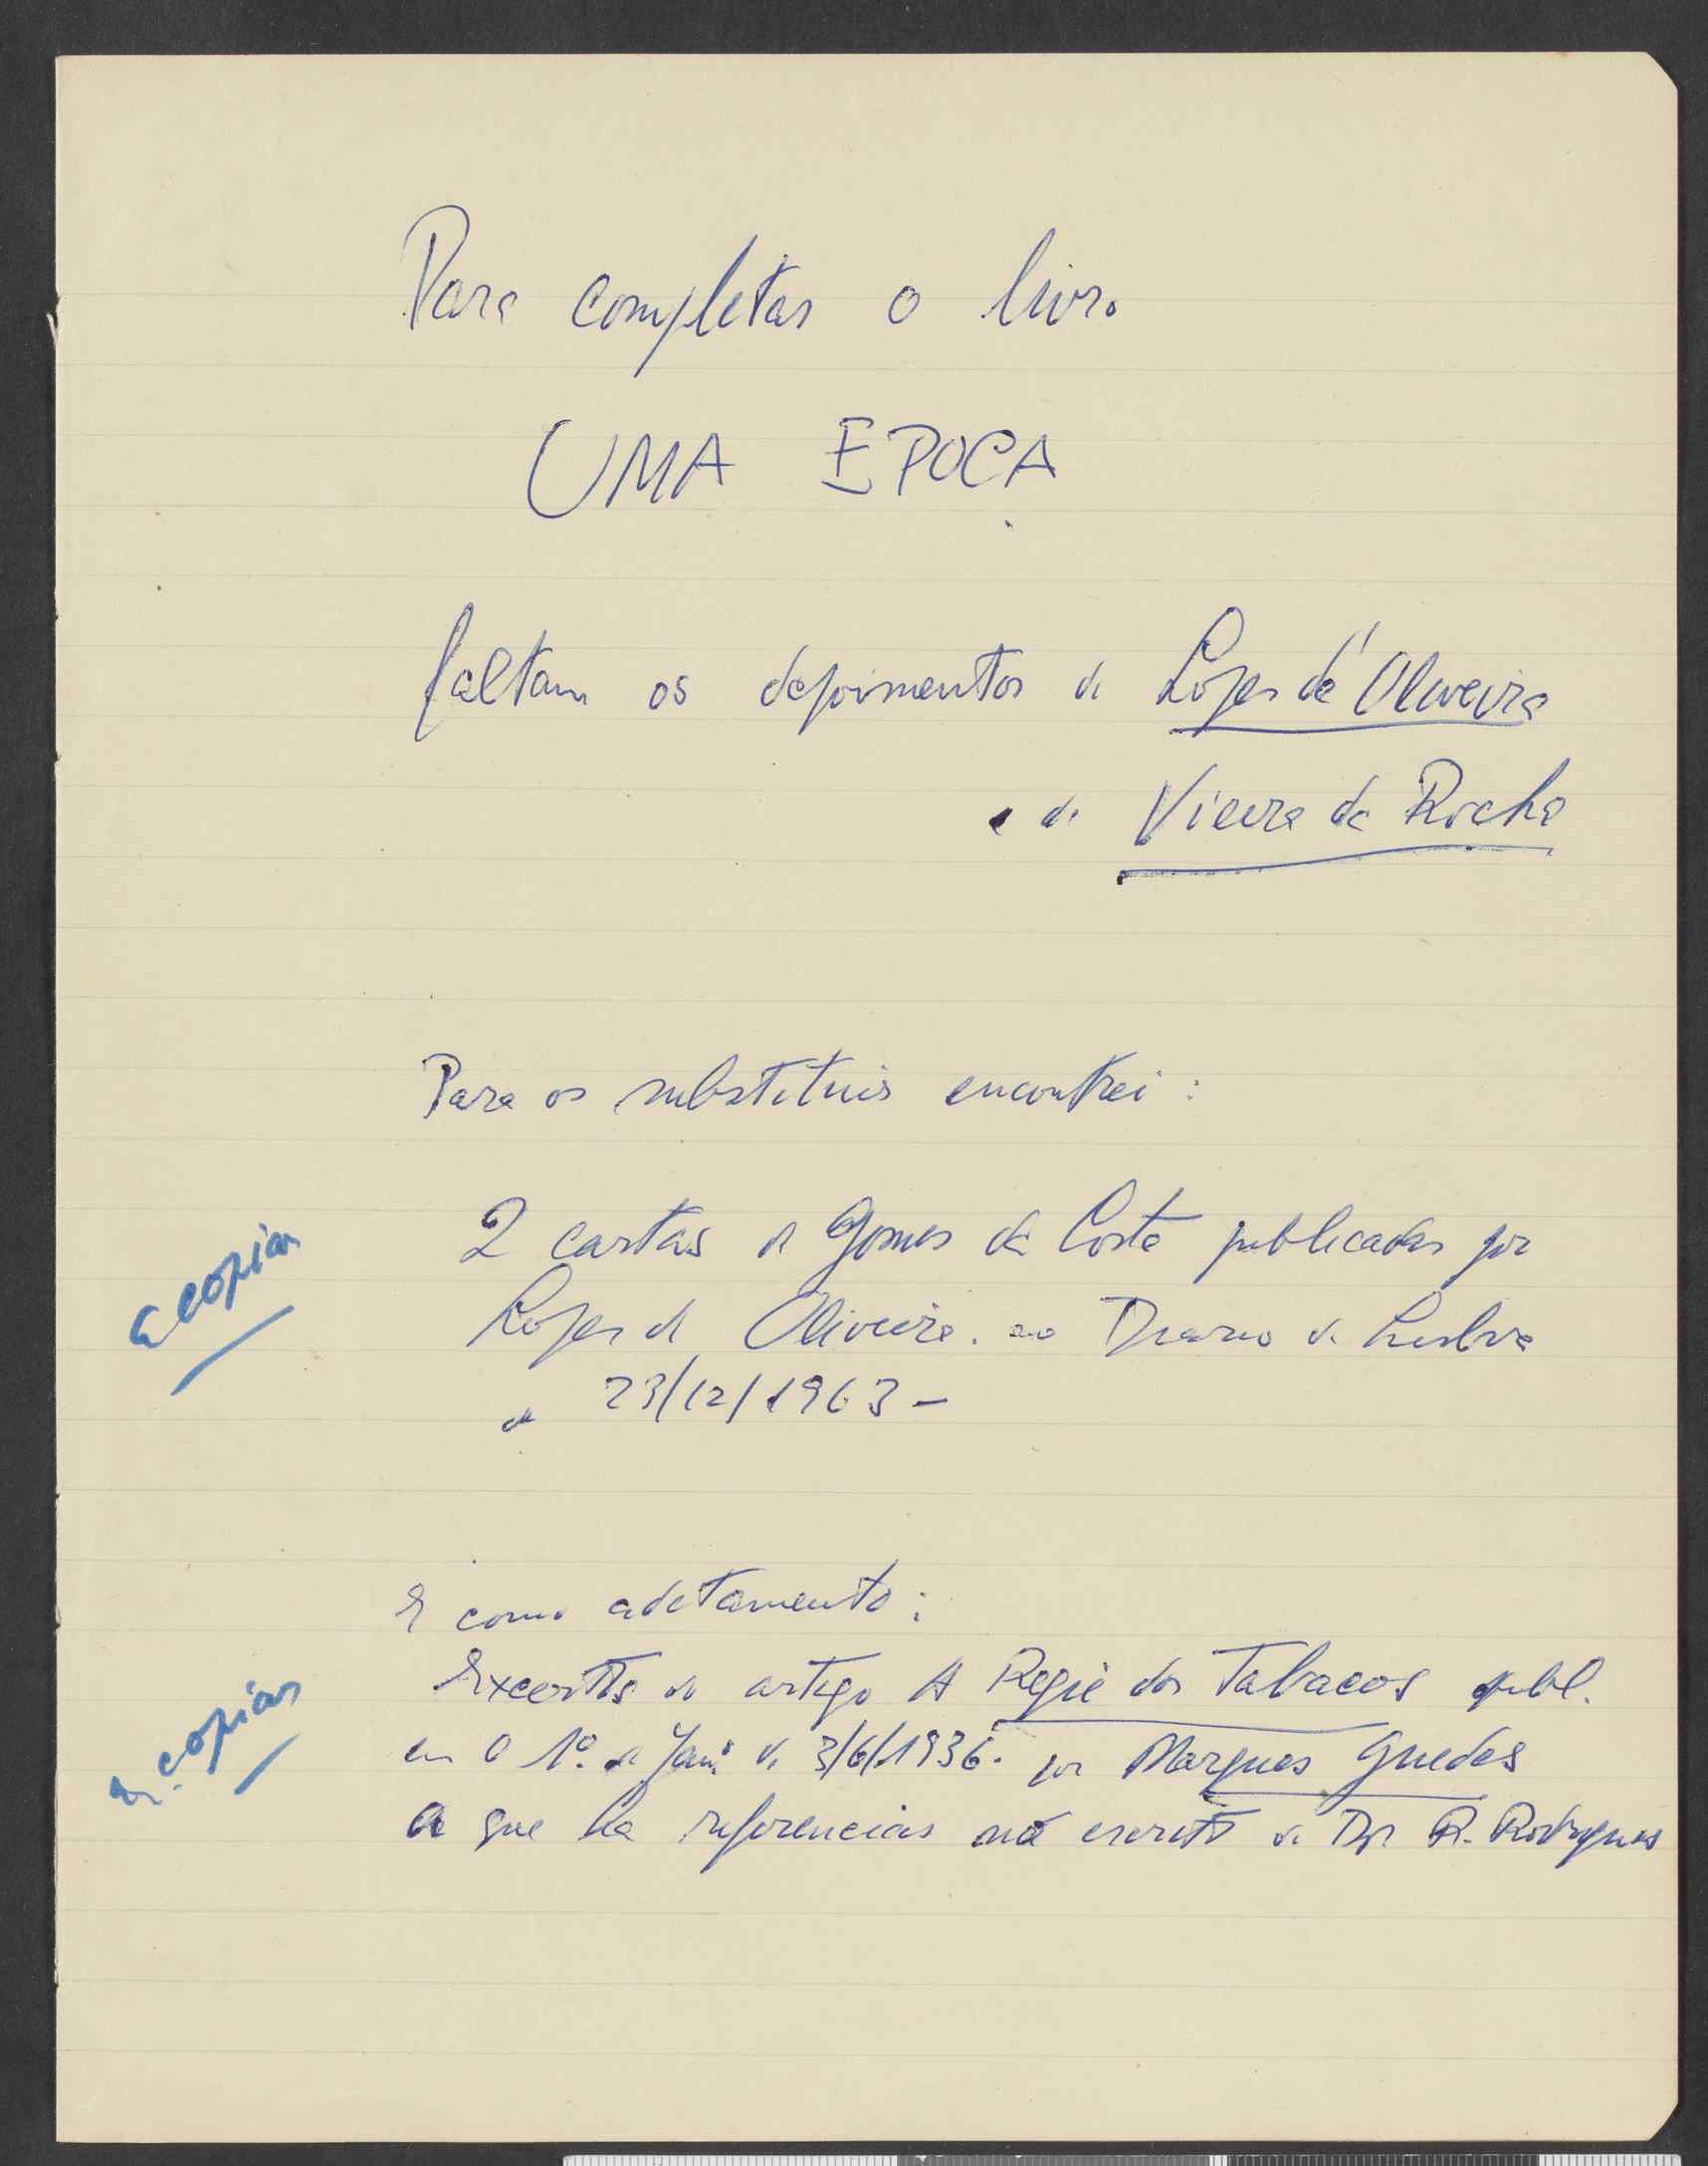 Para completar o livro
UMA EPOCA
faltam os depoimentos de Lopes de Oliveira
e de Vieira da Rocha
Para os substituir encontrei :
2 cartas de Gomes da Costa publicadas por
Lopes de Oliveira. no Diario de Lisboa
de 23/12/1963 -
copiar
E como aditamento :
Excertos do artigo A Regie dos Tabacos publ.
em O 1º. de Janº de 3/6/1936. por Marques Guedes
a que ha referencias no escrito do Dr R. Rodrigues
copiar